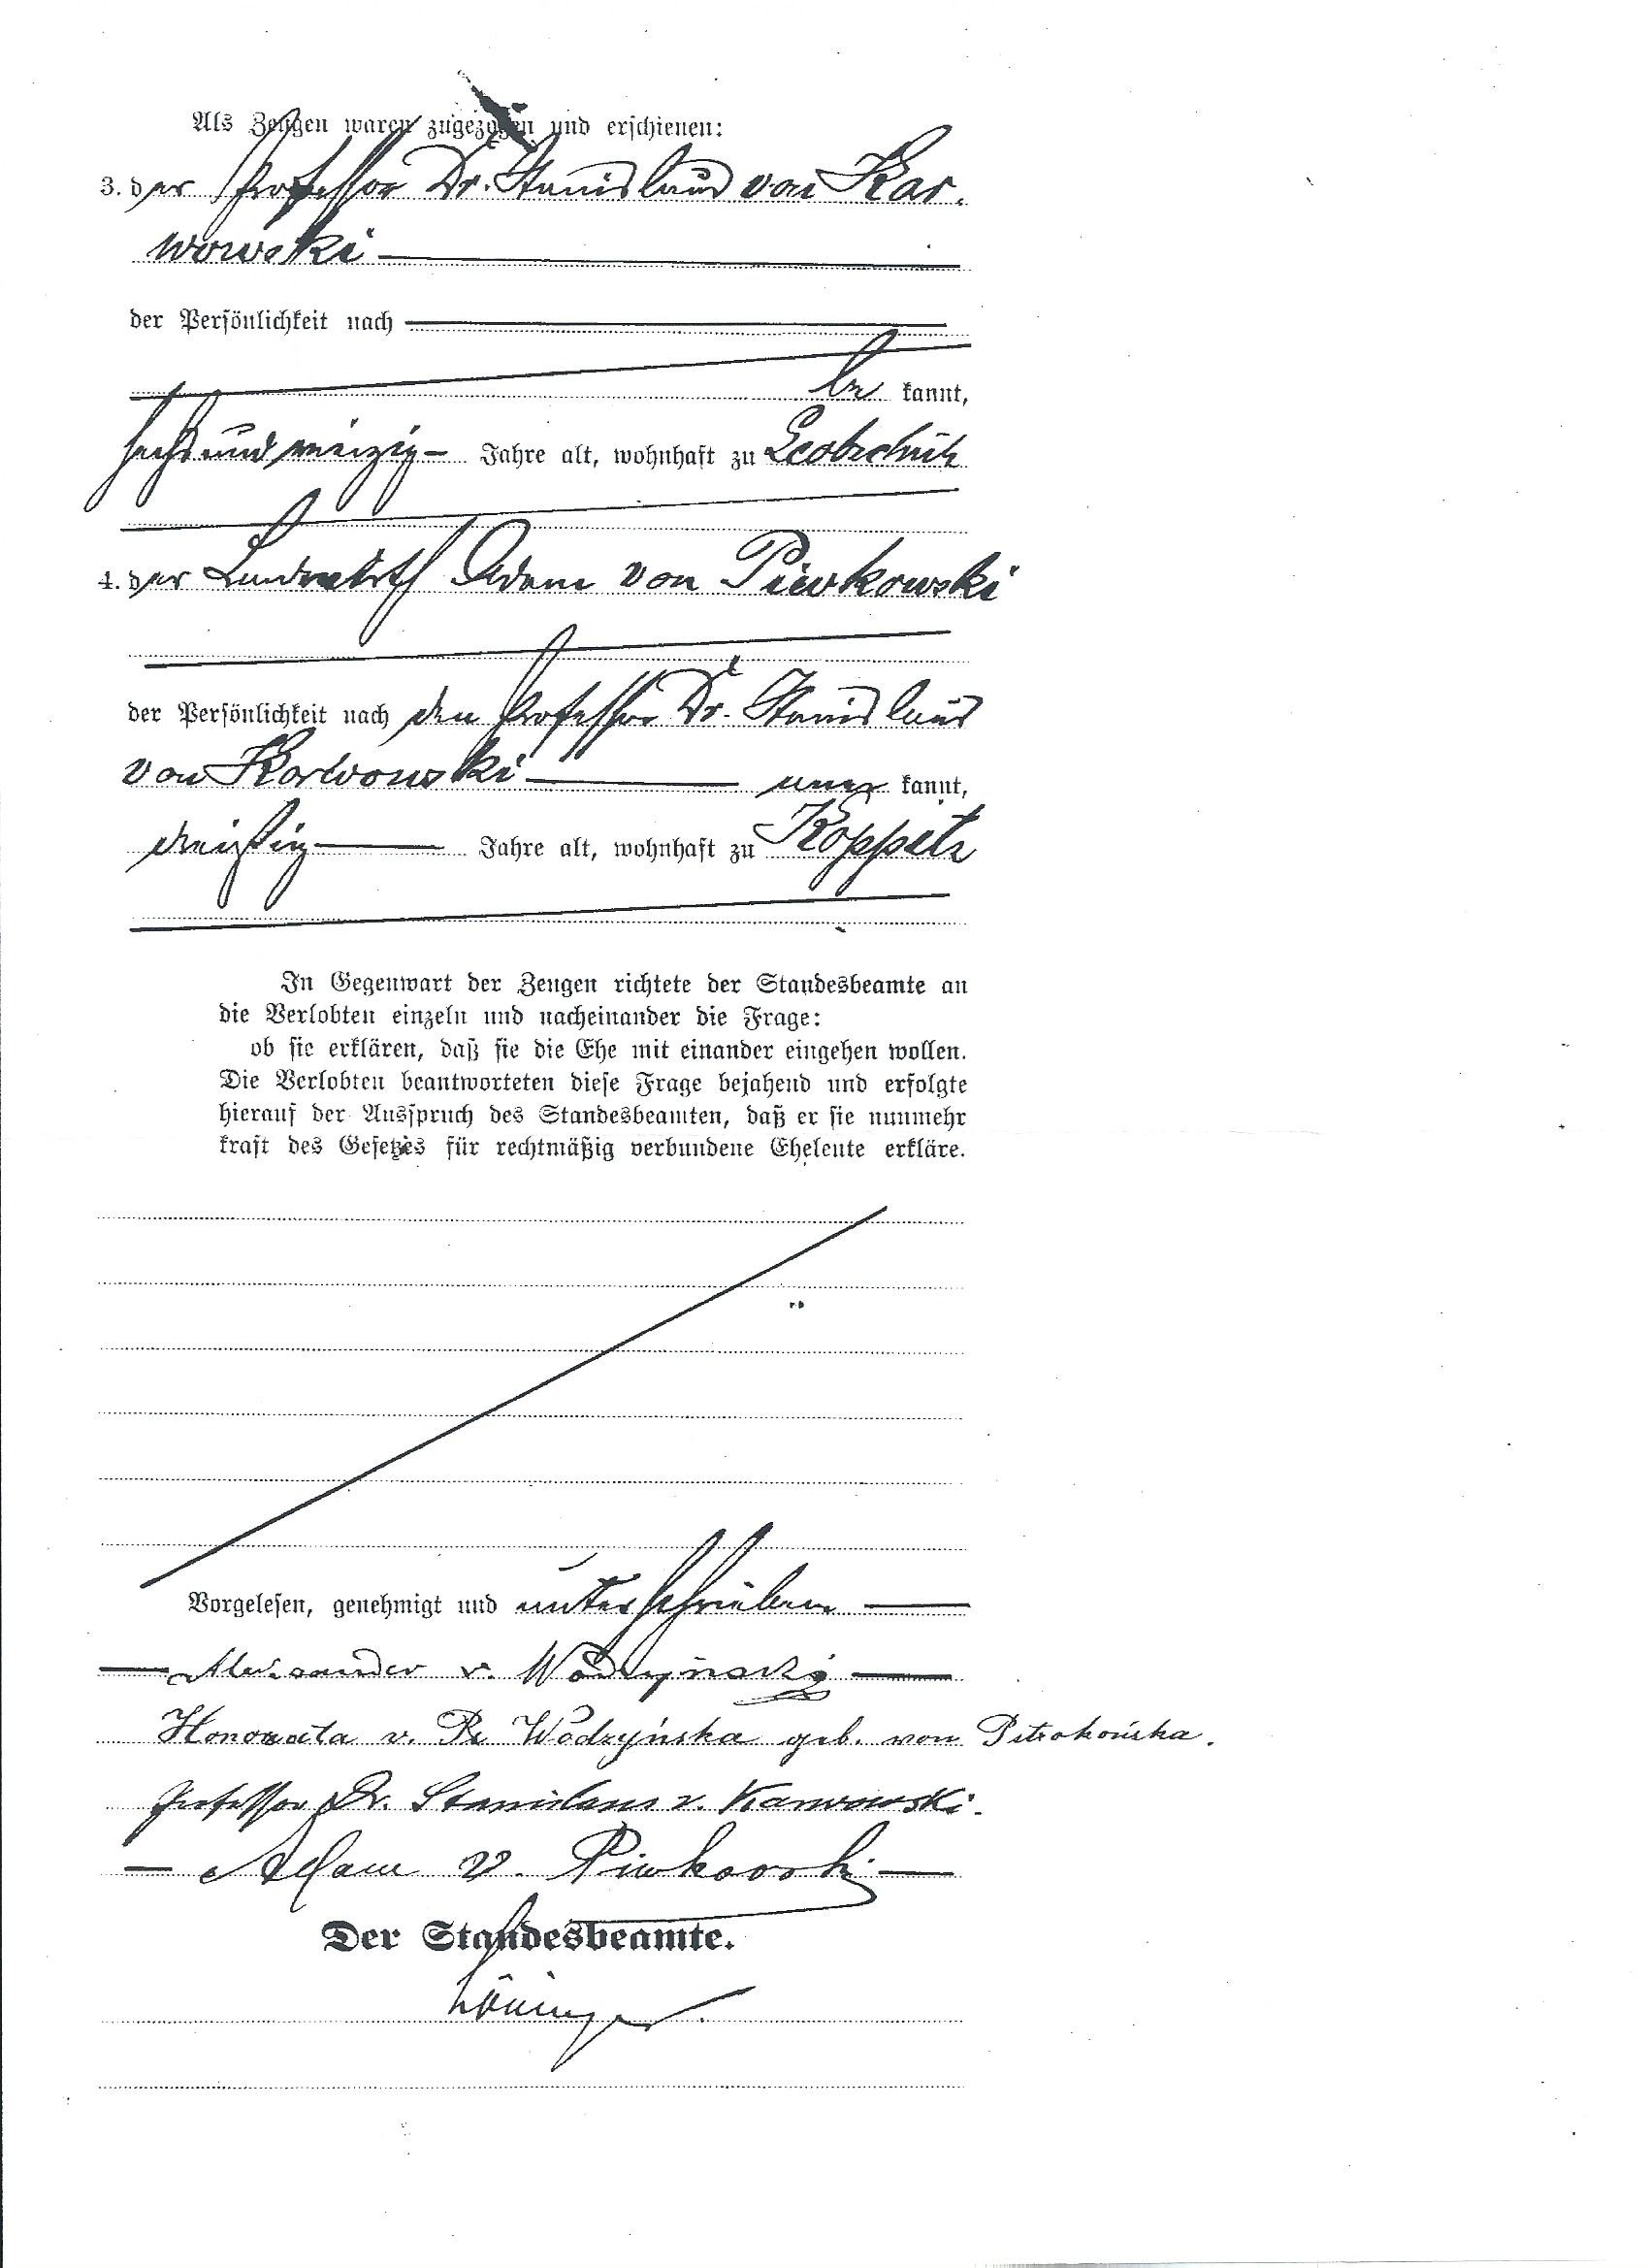 Als Zeugen waren zugezogen und erschienen:
3. der Professor Dr. Stanislaus von Kar-
wowski
der Persönlichkeit nach
be kannt,
sechs und vierzig Jahre alt, wohnhaft zu Leobschütz
4. der Landwirth Adam von Piwkowski
der Persönlichkeit nach den Professor Dr. Stanislaus
von Karwowski aner kannt,
dreißig Jahre alt, wohnhaft zu Koppitz
In Gegenwart der Zeugen richtete der Standesbeamte an
die Verlobten einzeln und nacheinander die Frage:
ob sie erklären, daß sie die Ehe mit einander eingehen wollen.
Die Verlobten beantworteten diese Frage bejahend und erfolgte
hierauf der Ausspruch des Standesbeamten, daß er sie nunmehr
kraft des Gesetzes für rechtmäßig verbundene Eheleute erkläre.
Vorgelesen, genehmigt und unterschrieben
Alexander v. Wodzynski
Honorata v. Wodzyńska geb. von Petrokońska.
Professor Dr. Stanislaus v. Karwowski.
Adam v. Piwkowski
Der Standesbeamte.